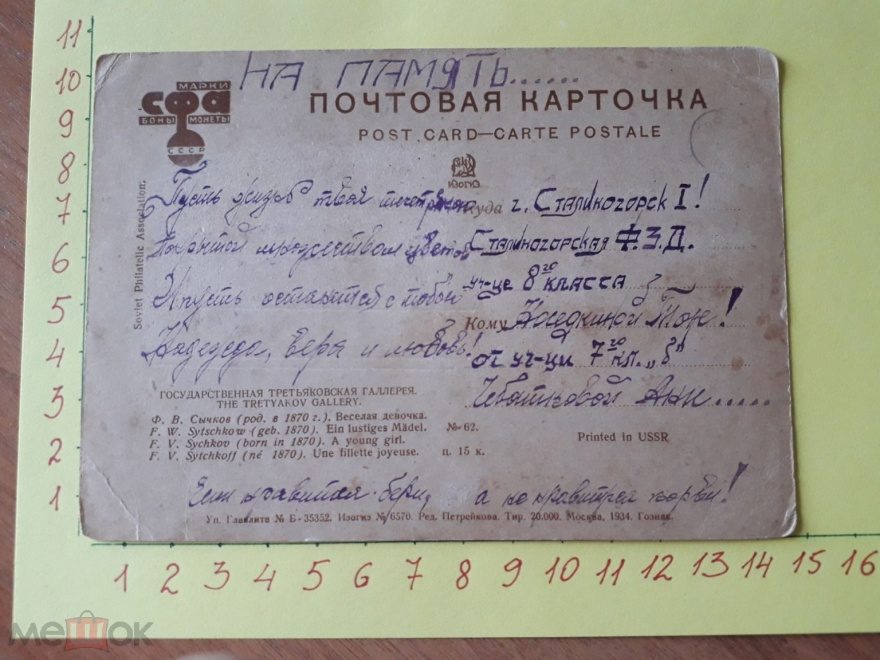 НА ПАМЯТЬ......
МАРКИ
СФА
БОНЫ МОНЕТЫ
СССР
ПОЧТОВАЯ КАРТОЧКА
POST CARD—CARTE POSTALE
ИЗОГИЗ
Soviet Philatelic Association.
Пусть жизнь твоя
цветов
И пусть останется с тобой
Надежда, вера и любовь!
Куда г. Сталиногорск I!
Сталиногорская Ф.З.Д.
уч-це 8го класса
Кому
от уч-ци 7го кл. „в"
ГОСУДАРСТВЕННАЯ ТРЕТЬЯКОВСКАЯ ГАЛЛЕРЕЯ.
THE TRETYAKOV GALLERY.
Ф. В. Сычков (род. в 1870 г.). Веселая девочка.
F. W. Sytschkow (geb. 1870). Ein lustiges Mädel. №-62.
F. V. Sychkov (born in 1870). A young girl.
F. V. Sytchkoff (né 1870). Une fillette joyeuse. ц. 15 к.
Printed in USSR
Если нравится-бери, а не нравится порви!
Уп. Главлита № Б-35352. Изогиз № 6570. Ред. Петрейкова. Тир. 20.000. Москва, 1934. Гознак.
11
10
9
8
7
6
5
4
3
2
1
1 2 3 4 5 6 7 8 9 10 11 12 13 14 15 16
мешок